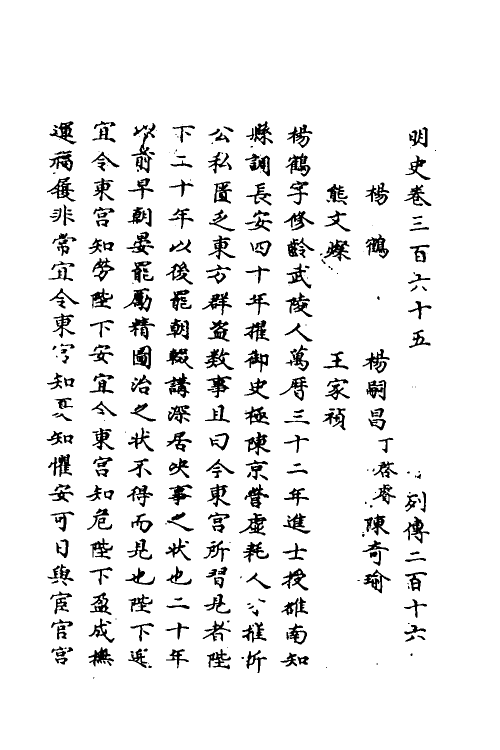 明史卷三百六十五 列傳二百十六
楊鶴 楊嗣昌 丁啓睿 陳奇瑜
熊文燦 王家禎
楊鶴字修齡武陵人萬曆三十二年進士授雒南知
縣調長安四十年擢御史極陳京營虛耗人分推折
公私匱乏東方群盜数事且曰今東宮所習見者陛
下二十年以後罷朝輟講深居决事之状也二十年
以前早朝晏罷勵精圖治之状不得而見也陛下逸
宜令東宮知勞陛下安宜令東宮知危陛下盈成撫
運福履非常宜令東宮知憂知懼安可日與宦官宮